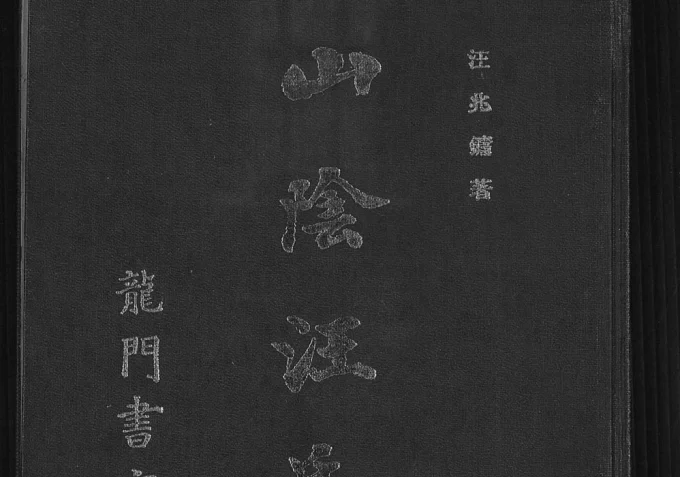 汪兆鏞著
山陰汪
龍門書